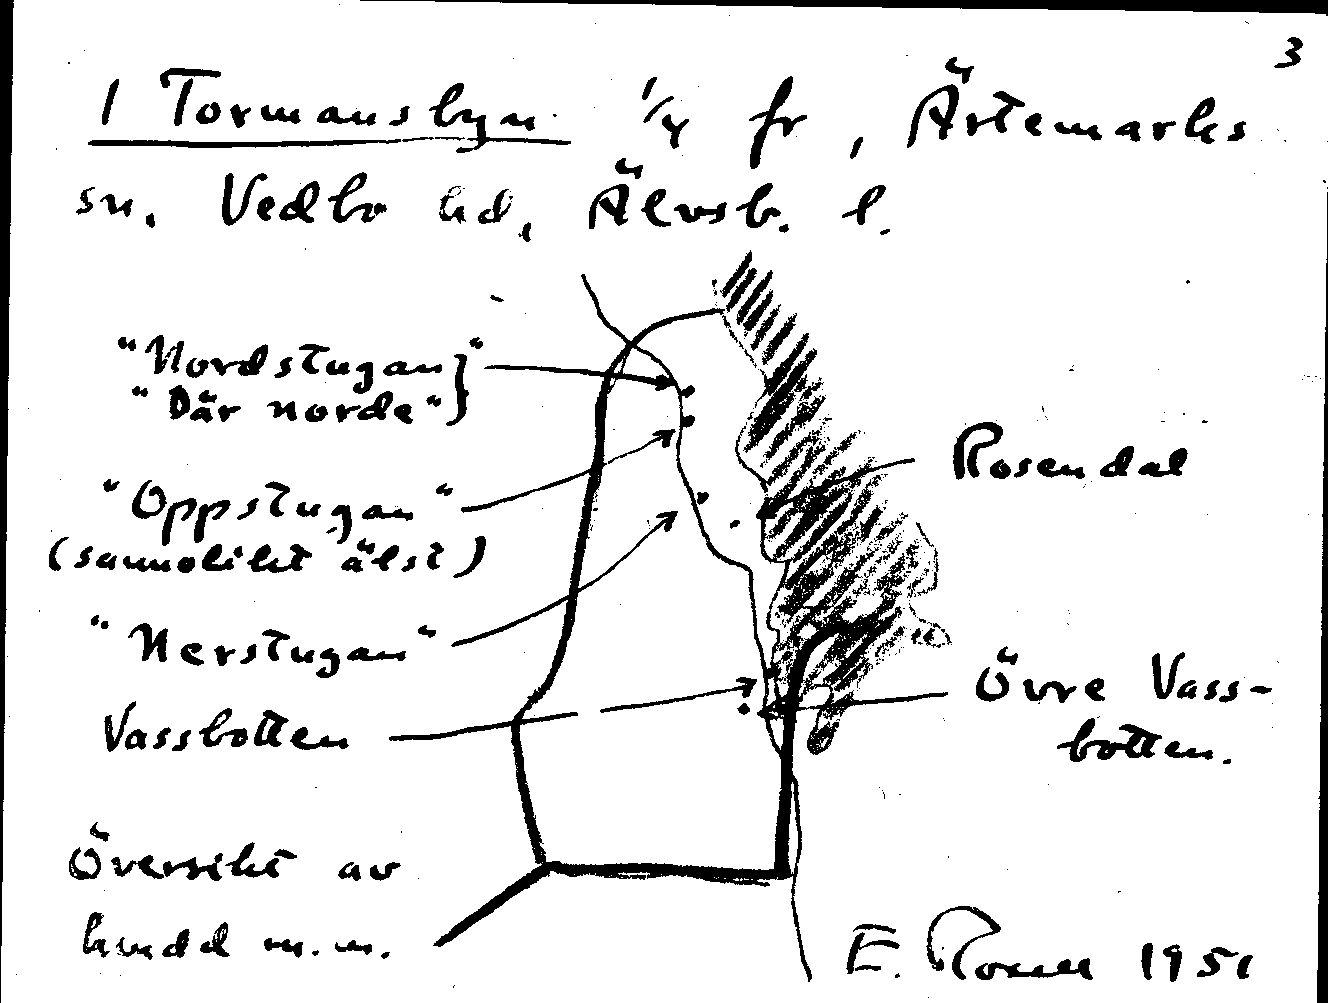 3
1 Tormansbyn 1/4 fr, Ärtemarks
sn, Vedbo hd, Älvsb. l.
"Nordstugan"
"Där norde"
"Oppstugan"
(sannolikt älst)
"Nerstugan"
Vassbotten
Rosendal
Övre Vass-
botten.
Översikt av
m.m.
E. 1951